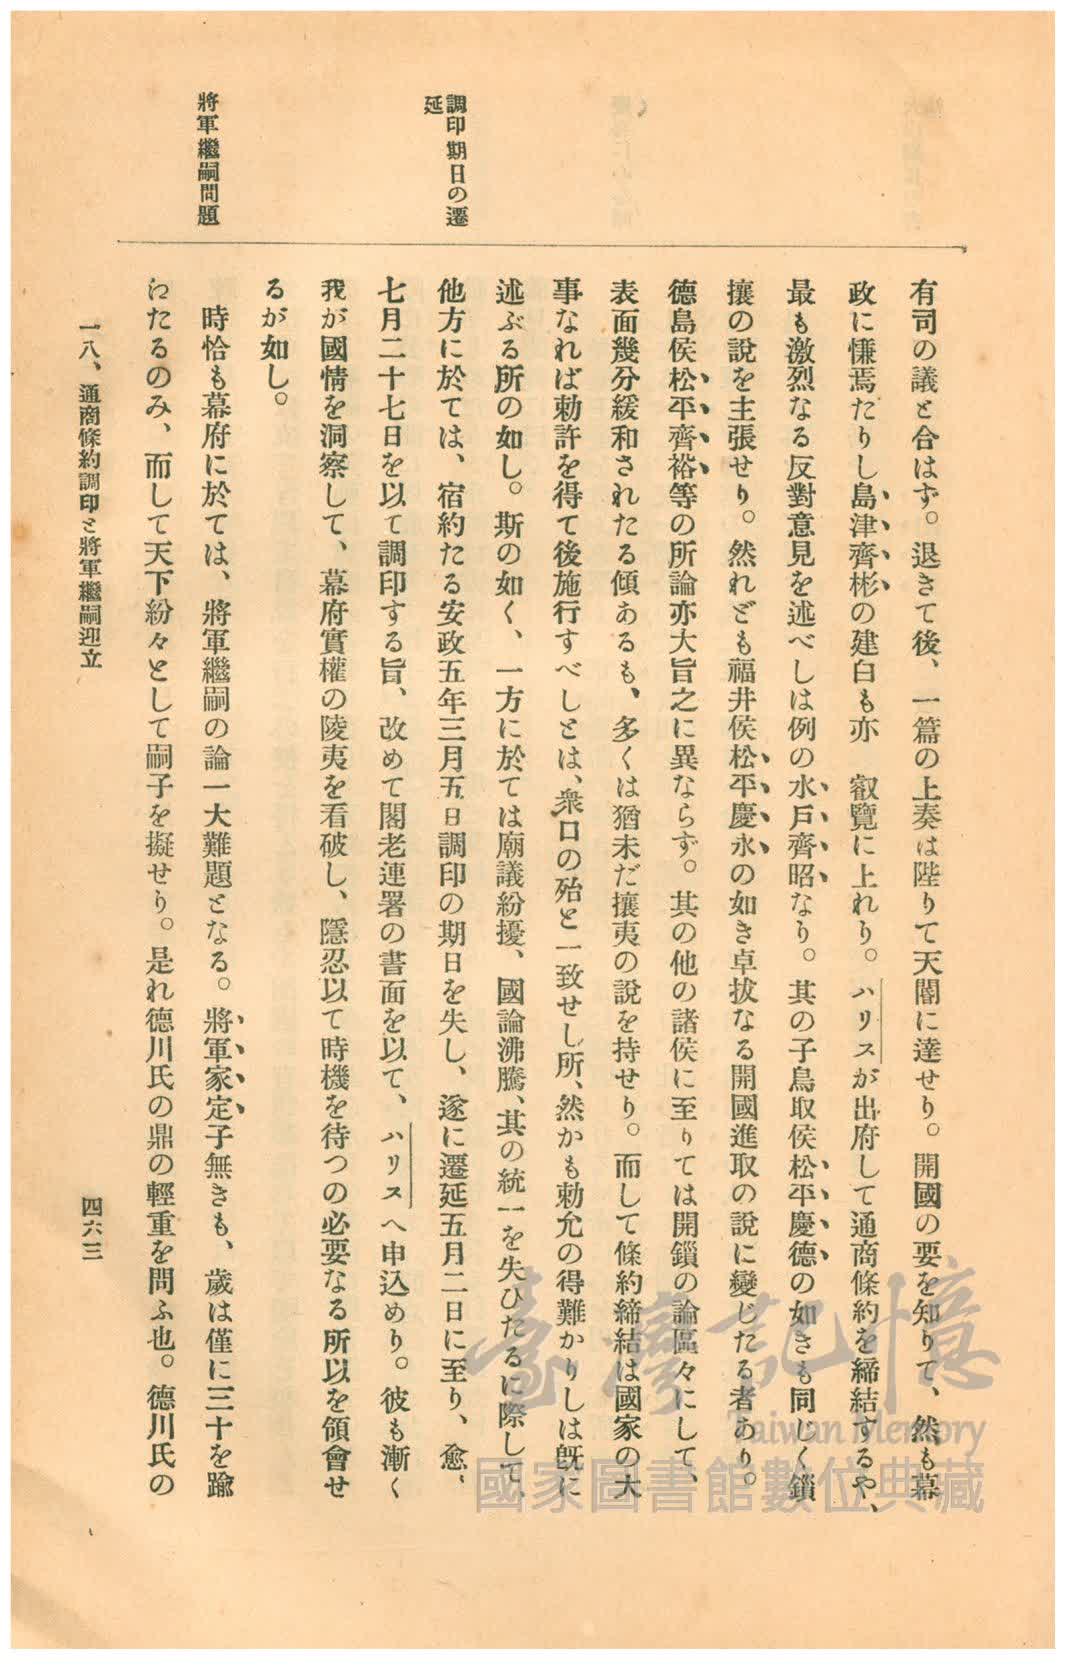 調印期日の遷
延
將軍繼嗣問題
有司の議と合はず。退きて後、一篇の上奏は陛りて天閽に達せり。開國の要を知りて、然も幕
政に慊焉たりし島津齊彬の建白も亦　叡覽に上れり。ハリスが出府して通商條約を締結するや、
最も激烈なる反對意見を述べしは例の水戶齊昭なり。其の子鳥取侯松平慶德の如きも同じく鎖
攘の說を主張せり。然れども福井侯松平慶永の如き卓拔なる開國進取の說に變じたる者あり。
德島侯松平齊裕等の所論亦大旨之に異ならず。其の他の諸侯に至りては開鎖の論區々にして、
表面幾分緩和されたる傾あるも、多くは猶未だ攘夷の說を持せり。而して條約締結は國家の大
事なれば勅許を得て後施行すべしとは、衆口の殆と一致せし所、然かも勅允の得難かりしは既に
述ぶる所の如し。斯の如く、一方に於ては廟議紛擾、國論沸騰、其の統一を失ひたるに際して、
他方に於ては、宿約たる安政五年三月五日調印の期日を失し、遂に遷延五月二日に至り、愈、
七月二十七日を以て調印する旨、改めて閣老連署の書面を以て、ハリスへ申込めり。彼も漸く
我が國情を洞察して、幕府實權の陵夷を看破し、隱忍以て時機を待つの必要なる所以を領會せ
るが如し。
時恰も幕府に於ては、將軍繼嗣の論一大難題となる。將軍家定子無きも、歲は僅に三十を踰
わたるのみ、而して天下紛々として嗣子を擬せり。是れ德川氏の鼎の輕重を問ふ也。德川氏の
一八、通商條約調印と將軍繼嗣迎立
四六三
臺灣記憶
Taiwan Memory
國家圖書館數位典藏